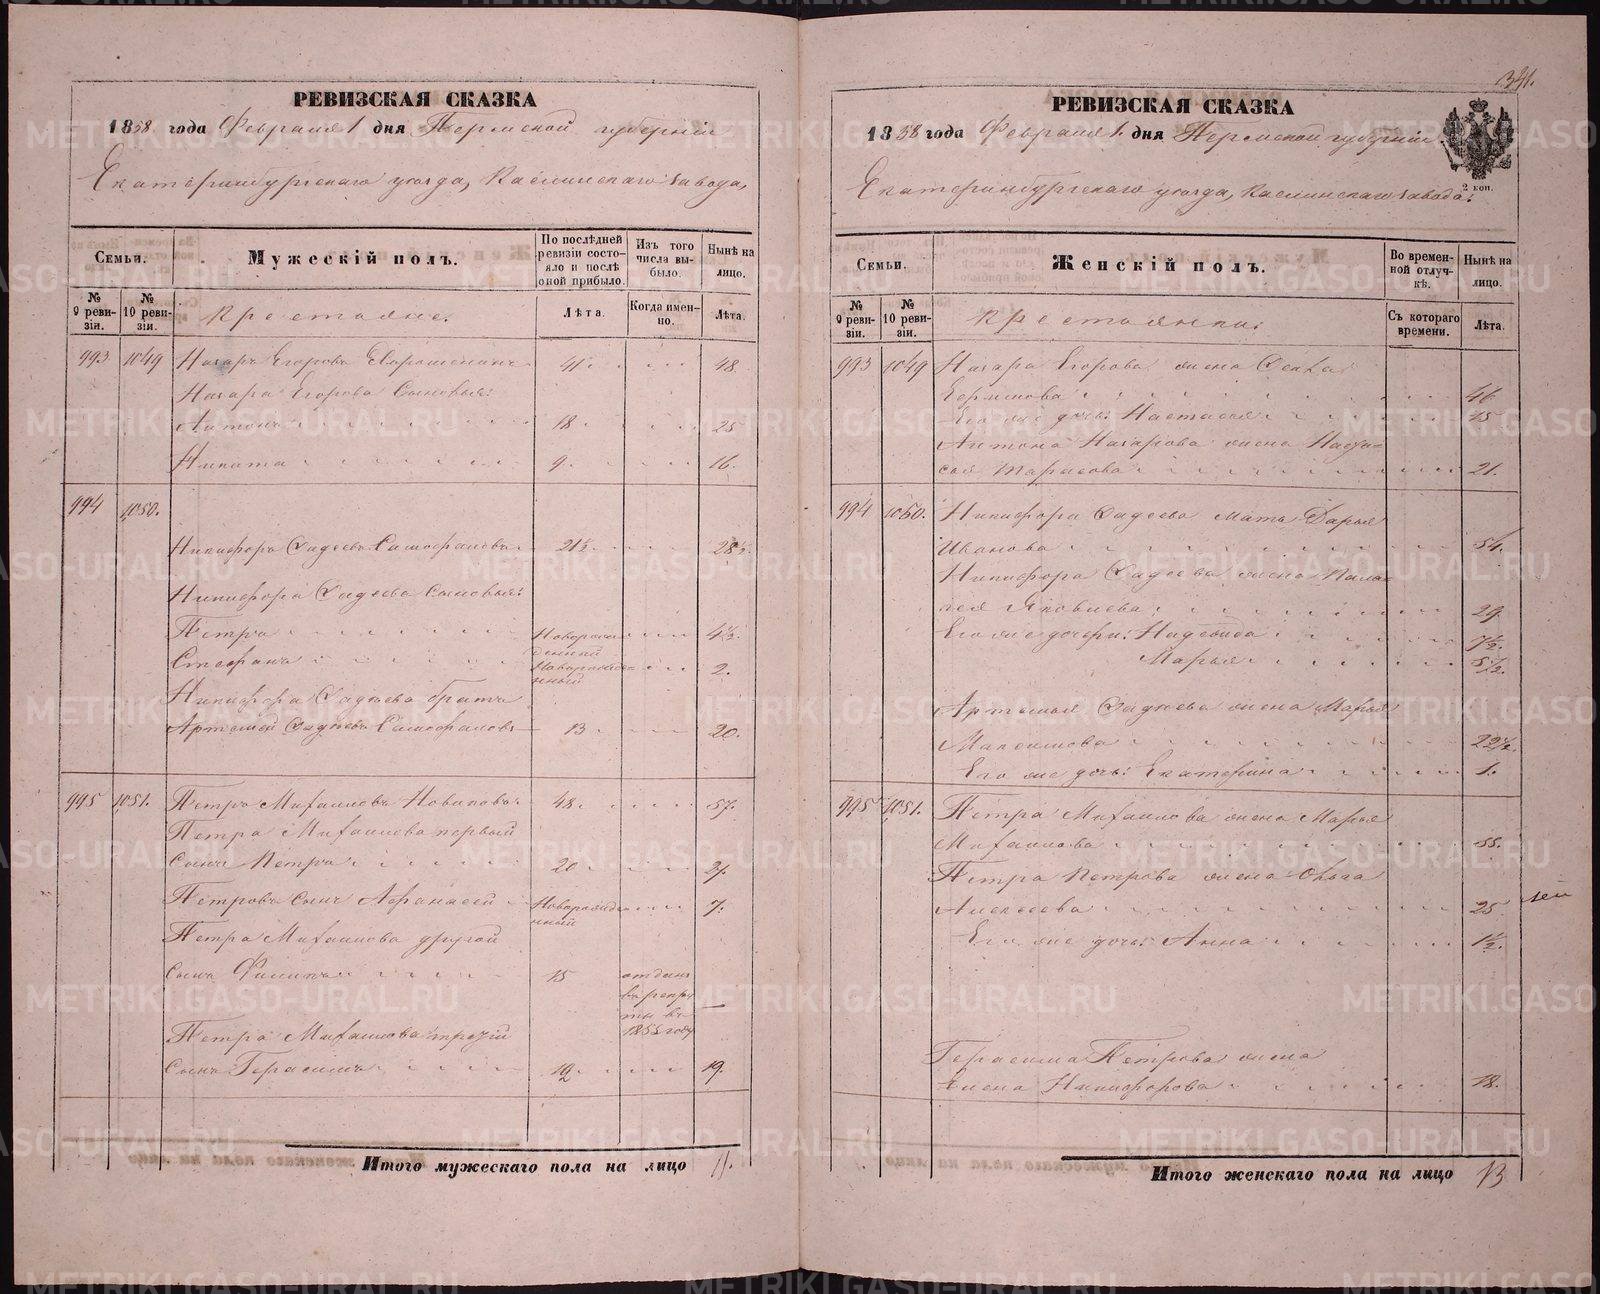 РЕВИЗСКАЯ СКАЗКА
1858 года Февраля 1 дня Пермской губернiи
Екатеринбургскаго уѣзда, Каслинскаго завода,
Семьи.
Мужескiй полъ.
По послѣдней ревизiи состояло и послѣ оной прибыло.
Изъ того числа выбыло.
Нынѣ на лицо.
№ 9 ревизiи.
№ 10 ревизiи.
Крестьяне.
Лѣта.
Когда именно.
Лѣта.
993 1049 Назаръ Егоровъ 41 48.
Назара Егорова сыновья:
Антонъ 18 25
Никита 9 16.
994 1050.
Никифоръ Фадеевъ 21½ 28½
Никифора Фадеева сыновья:
Петръ Новорожденный 4½.
Стефанъ Новорожденный 2.
Никифора Фадѣева братъ
Артемiй Фадѣевъ 13 20.
995 1051. Петръ Михаиловъ Новиковъ 48 57.
Петра Михаилова первый
сынъ Петръ 20
Петровъ сынъ Афанасiй Новорожденный 7.
Петра Михаилова другой
сынъ Филипъ 15 отданъ въ рекруты въ 1855 году —
Петра Михаилова третiй
сынъ Герасимъ 12 19.
Итого мужескаго пола на лицо 11.
341.
РЕВИЗСКАЯ СКАЗКА
1858 года Февраля 1. дня Пермской губернiи
2 коп.
Екатеринбургскаго уѣзда, Каслинскаго завода.
Семьи.
Женскiй полъ.
Во временной отлучкѣ.
Нынѣ на лицо.
№ 9 ревизiи.
№ 10 ревизiи.
Крестьянки:
Съ котораго времени.
Лѣта.
993 1049 Назара Егорова жена Фекла
46
Его же дочь: Настасья 15
Антона Назарова жена
Тарасова 21.
994 1050. Никифора Фадеева мать Дарья
Иванова 54.
Никифора Фадеева жена Пелагея
Яковлева 29
Его же дочери: Надежда 7½.
Марья 5½.
Артемья Фадѣева жена Марья
Максимова 22½.
Его же дочь: Екатерина 1.
995 1051. Петра Михаилова жена Марья
Михаилова 55.
Петра Петрова жена Ольга
Алексѣева 25
Его же дочь: Анна 1½.
Герасима Петрова жена
Елена Никифорова 18.
Итого женскаго пола на лицо 13
METRIKI.GASO-URAL.RU